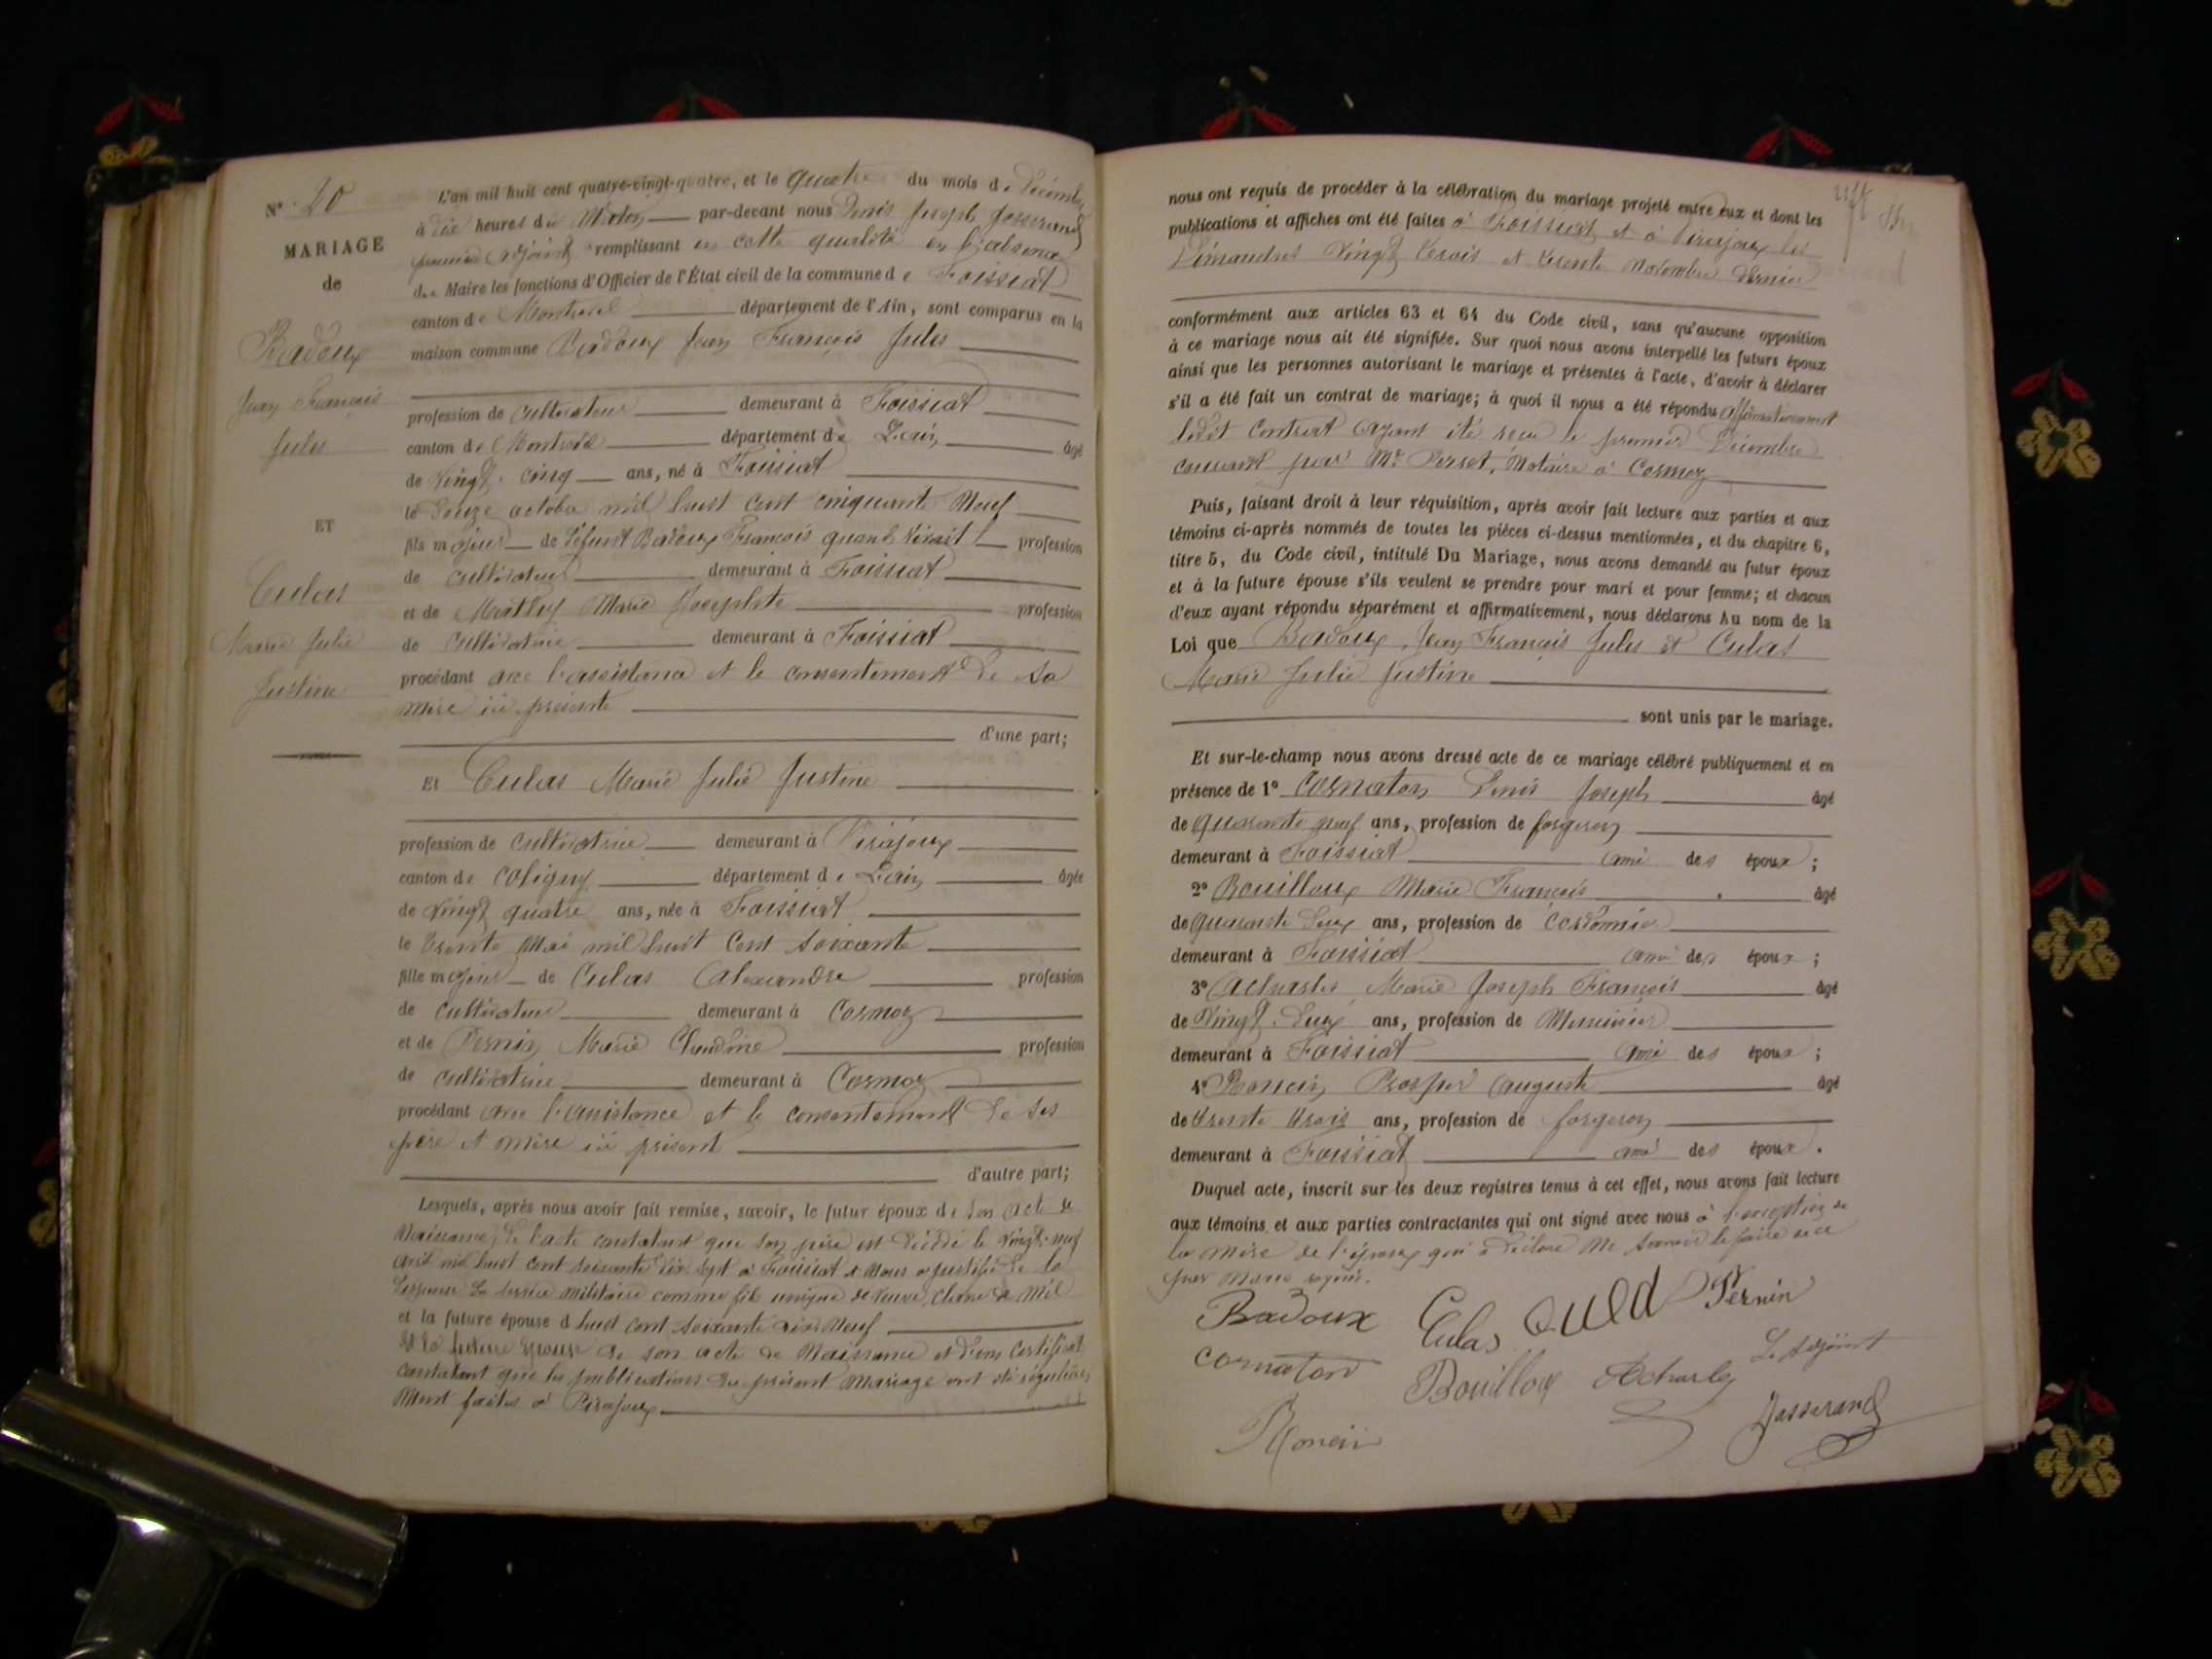 N° 20
MARIAGE
de
Badoux
Jean François
Jules
ET
Culas
Marie Julie
Justine
L'an mil huit cent quatre-vingt-quatre, et le quatre du mois de Décembre
à dix heures du Matin par-devant nous Denis Joseph Josserand
premier adjoint remplissant en cette qualité en l'absence
du Maire les fonctions d'Officier de l'État civil de la commune de Foissiat
canton de Montrevel département de l'Ain, sont comparus en la
maison commune Badoux Jean François Jules
profession de cultivateur demeurant à Foissiat
canton de Montrevel département de L'ain âgé
de Vingt-cinq ans, né à Foissiat
le Douze octobre mil huit cent cinquante Neuf
fils majeur de Défunt Badoux François quand vivait profession
de cultivateur demeurant à Foissiat
et de Mathy Marie Josephte profession
de cultivatrice demeurant à Foissiat
procédant avec l'assistance et le consentement de sa
mère ici présente
d'une part;
Et Culas Marie Julie Justine
profession de cultivatrice demeurant à Pirajoux
canton de Coligny département de L'ain âgée
de Vingt quatre ans, née à Foissiat
le trente Mai mil huit cent soixante
fille majeure de Culas Alexandre profession
de cultivateur demeurant à Cormoz
et de Pernin Marie Claudine profession
de cultivatrice demeurant à Cormoz
procédant avec l'assistance et le consentement de ses
père et mère ici présent
d'autre part;
Lesquels, après nous avoir fait remise, savoir, le futur époux de son acte de
Naissance, de l'acte constatant que son père est décédé le Vingt-neuf
avril mil huit cent soixante dix sept à Foissiat et Nous a justifié de la
Dispense du service militaire comme fils unique de Veuve, classe de Mil
et la future épouse d huit cent soixante dix Neuf
Et la future épouse de son acte de Naissance et d'un certificat
constatant que les publications du présent mariage ont été régulière
Ment faites à Pirajoux
nous ont requis de procéder à la célébration du mariage projeté entre eux et dont les
publications et affiches ont été faites à Foissiat et à Pirajoux les
Dimanches Vingt trois et trente Novembre dernier
conformément aux articles 63 et 64 du Code civil, sans qu'aucune opposition
à ce mariage nous ait été signifiée. Sur quoi nous avons interpellé les futurs époux
ainsi que les personnes autorisant le mariage et présentes à l'acte, d'avoir à déclarer
s'il a été fait un contrat de mariage; à quoi il nous a été répondu affirmativement
ledit contrat ayant été reçu le premier Décembre
courant par Me Perret, Notaire à Cormoz
Puis, faisant droit à leur réquisition, après avoir fait lecture aux parties et aux
témoins ci-après nommés de toutes les pièces ci-dessus mentionnées, et du chapitre 6,
titre 5, du Code civil, intitulé Du Mariage, nous avons demandé au futur époux
et à la future épouse s'ils veulent se prendre pour mari et pour femme; et chacun
d'eux ayant répondu séparément et affirmativement, nous déclarons Au nom de la
Loi que Badoux, Jean François Jules et Culas
Marie Julie Justine
sont unis par le mariage.
Et sur-le-champ nous avons dressé acte de ce mariage célébré publiquement et en
présence de 1° Cornaton Denis Joseph âgé
de quarante neuf ans, profession de forgeron
demeurant à Foissiat ami des époux;
2° Bouilloux Marie François âgé
de quarante deux ans, profession de cordonnier
demeurant à Foissiat ami des époux;
3° Acharles Marie Joseph François âgé
de Vingt-deux ans, profession de Menuisier
demeurant à Foissiat ami des époux;
4° Prosper Auguste âgé
de trente trois ans, profession de forgeron
demeurant à Foissiat ami des époux.
Duquel acte, inscrit sur les deux registres tenus à cet effet, nous avons fait lecture
aux témoins et aux parties contractantes qui ont signé avec nous à l'exception de
la mère de l'époux qui a déclaré ne savoir le faire de ce
par nous requis.
Badoux Culas Pernin
cornaton Bouilloux Acharles Le Adjoint
Josserand